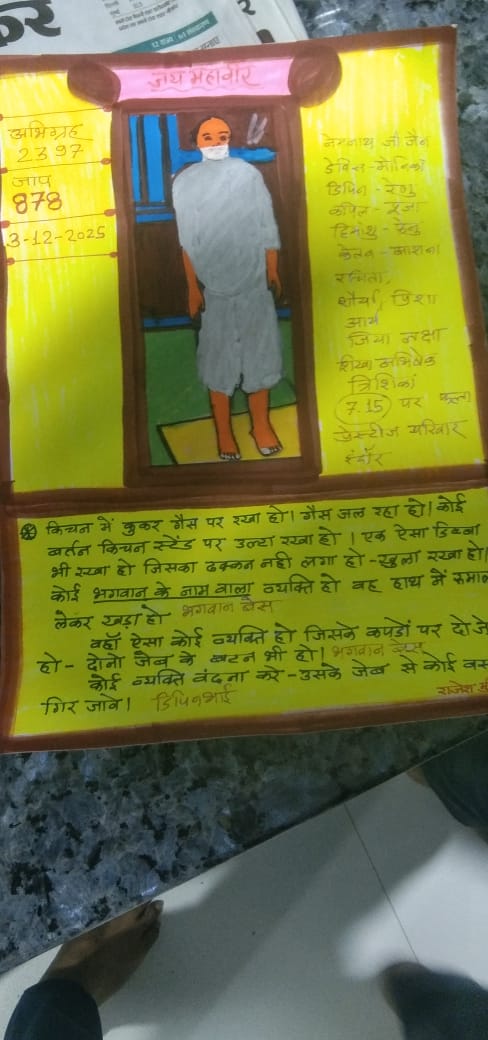 कर
जय महावीर
अभिग्रह
2397
जाप
878
3-12-2025
नेमनाथ जी जैन
डेविस - मोनिका
डिपिन - रेणु
कपिल - पूजा
हिमांशु - रेणु
केतन - आशना
रचिता,
शौर्या, प्रिशा
आर्य
जिया नक्षा
शिखा अभिषेक
त्रिशिका
7.15 पर फला
प्रेस्टीज परिवार
इंदौर
किचन में कुकर गैस पर रखा हो। गैस जल रहा हो। कोई
बर्तन किचन स्टेंड पर उल्टा रखा हो। एक ऐसा डिब्बा
भी रखा हो जिसका ढक्कन नही लगा हो - खुला रखा हो।
कोई भगवान के नाम वाला व्यक्ति हो वह हाथ में रूमाल
लेकर खड़ा हो भगवान बेस
वहाँ ऐसा कोई व्यक्ति हो जिसके कपड़ों पर दो जे
हो - दोनो जेब के बटन भी हो। भगवान बेस
कोई व्यक्ति वंदना करे - उसके जेब से कोई वस
गिर जावे। डिपिनभाई
राजेश